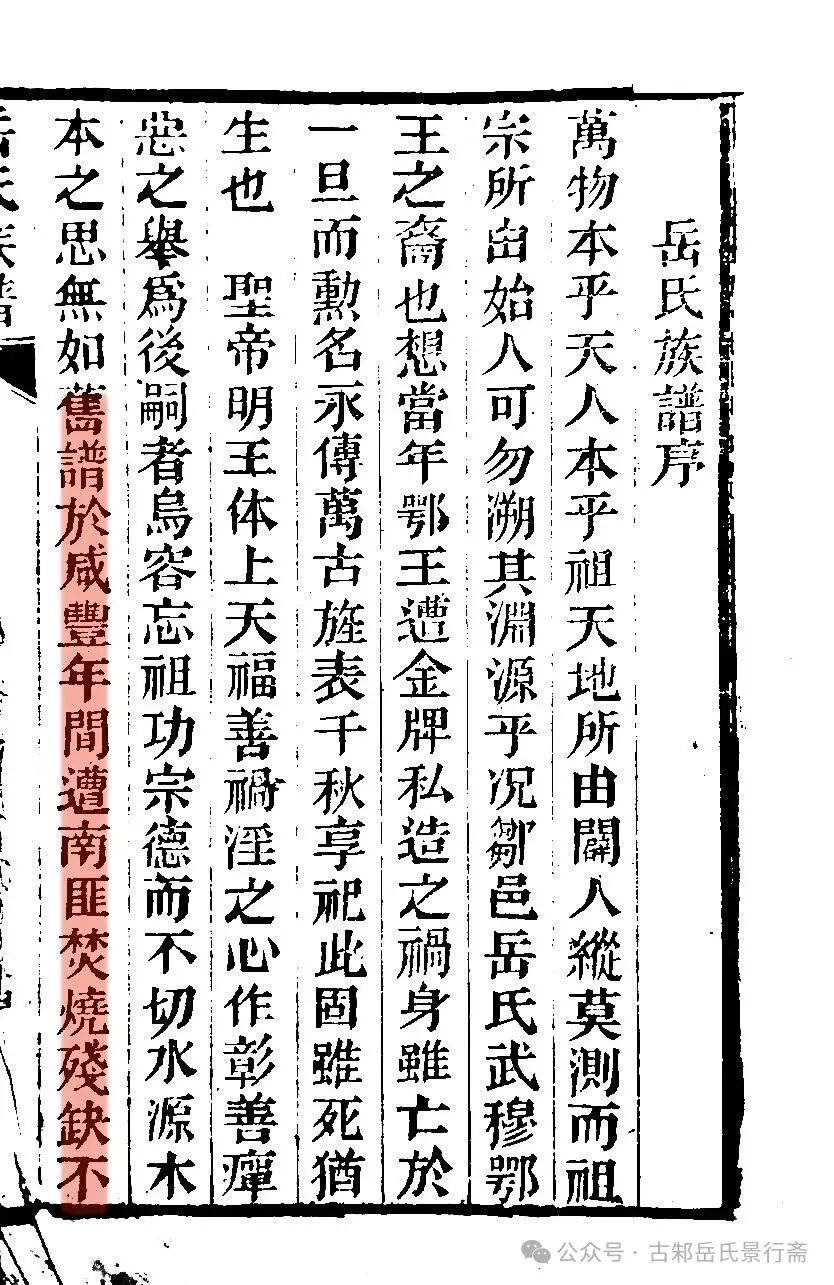 岳氏族譜序
萬物本乎天人本乎祖天地所由闢人縱莫測而祖
宗所由始人可勿溯其淵源乎况鄒邑岳氏武穆鄂
王之裔也想當年鄂王遭金牌私造之禍身雖亡於
一旦而勳名永傳萬古旌表千秋享祀此固雖死猶
生也　聖帝明王体上天福善禍淫之心作彰善癉
惡之舉爲後嗣者烏容忘祖功宗德而不切水源木
本之思無如舊譜於咸豐年間遭南匪焚燒殘缺不
岳氏族譜
公众号·古邾岳氏景行斋